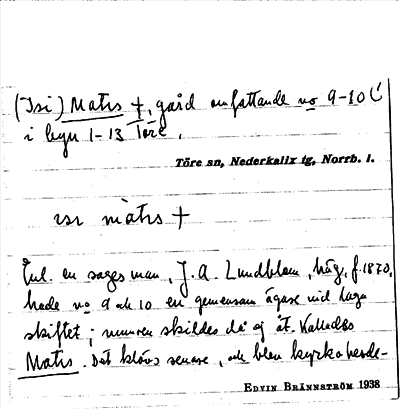 (Isi) Mats †, gård omfattande no 9-10
i byn 1-13 Töre.
Töre sn, Nederkalix tg, Norrb. l.
ısı màts †
Enl. en sagesman, J. A. Lundblom, häg, f. 1870,
hade no 9 och 10 en gemensam ägare vid laga
skiftet; numren skildes då åt. Kallades
Mats. Det klövs senare, och blev kyrkoherde-
EDVIN BRÄNNSTRÖM 1938